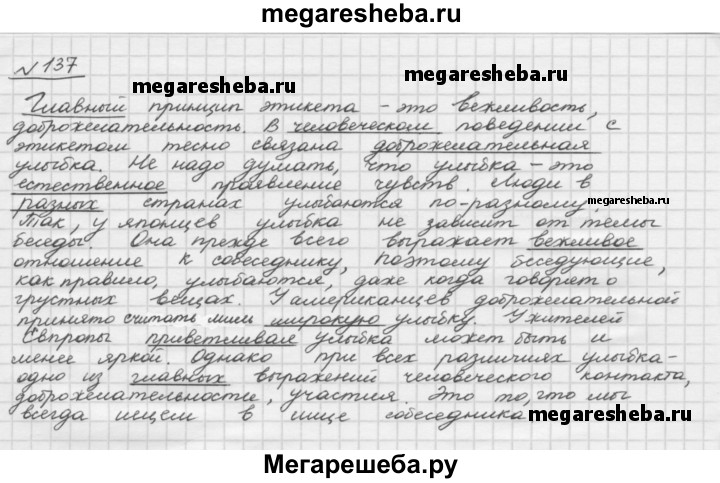 megaresheba.ru
№137
megaresheba.ru
megaresheba.ru
Главный принцип этикета - это вежливость,
доброжелательность. В человеческом поведении с
этикетом тесно связана доброжелательная
улыбка. Не надо думать, что улыбка - это
естественное проявление чувств. Люди в
разных странах улыбаются по-разному.
megaresheba.ru
Так, у японцев улыбка не зависит от темы
беседы. Она прежде всего выражает вежливое
отношение к собеседнику, поэтому беседующие,
как правило, улыбаются, даже когда говорят о
грустных вещах. У американцев доброжелательной
принято считать лишь широкую улыбку. У жителей
Европы приветливая улыбка может быть и
менее яркой. Однако при всех различиях улыбка -
одно из главных выражений человеческого контакта,
доброжелательности, участия. Это то, что мы
всегда ищем в лице собеседника
megaresheba.ru
Мегарешеба.ру